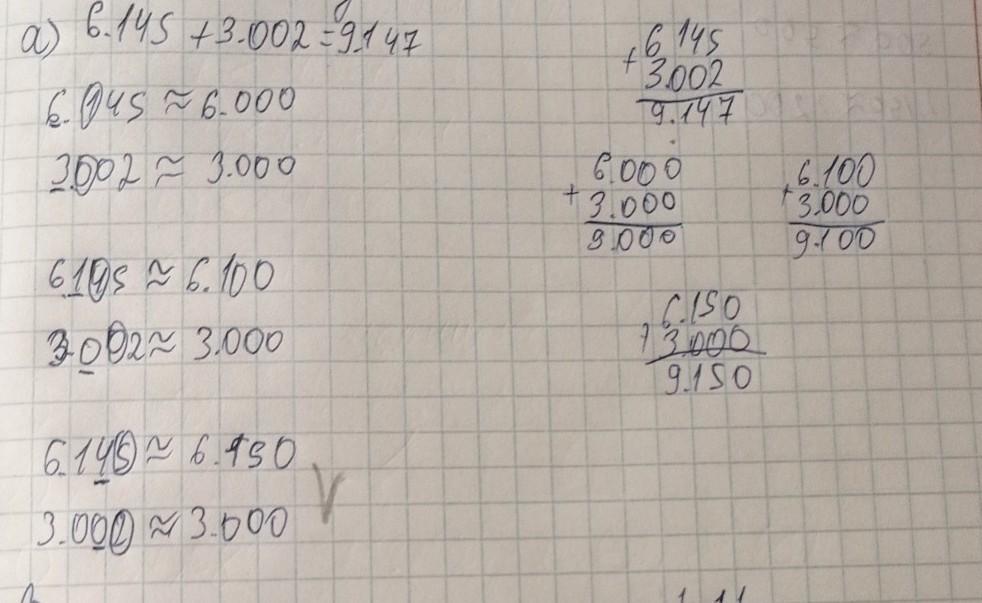 a) 6.145 + 3.002 = 9.147
6.145 ≈ 6.000
3.002 ≈ 3.000
6.145 ≈ 6.100
3.002 ≈ 3.000
6.145 ≈ 6.150
3.002 ≈ 3.000 V
+6 145
3.002
9.147
6.000
+3.000
9.000
6.100
+3.000
9.100
6.150
+3.000
9.150